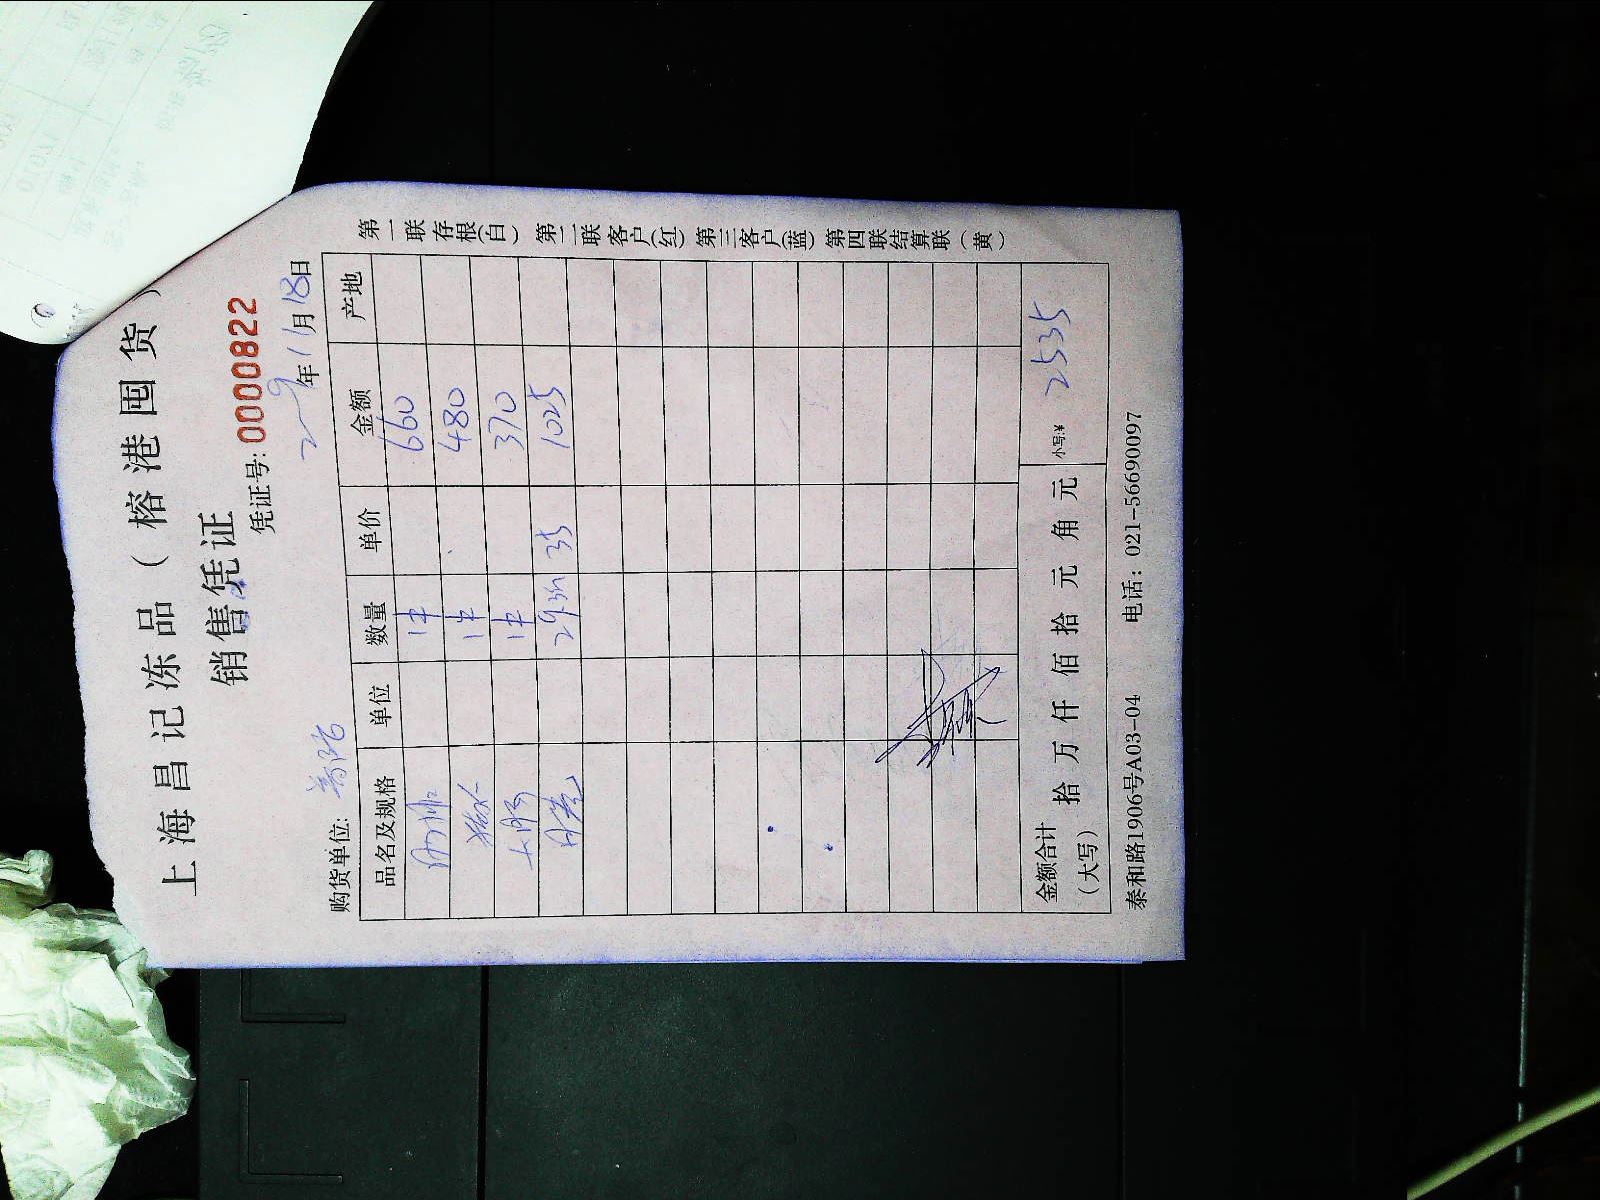 上海昌记冻品（榕港囤货）
销售凭证
凭证号: 0000822
年11月18日
购货单位:
品名及规格 单位 数量 单价 金额 产地
1件 660
1件 480
1件 370
35 1025
金额合计（大写） 拾 万 仟 佰 拾 元 角 元 小写:¥ 2535
泰和路1906号A03-04 电话: 021-56690097
第一联存根(白) 第二联客户(红) 第三客户(蓝) 第四联结算联(黄)